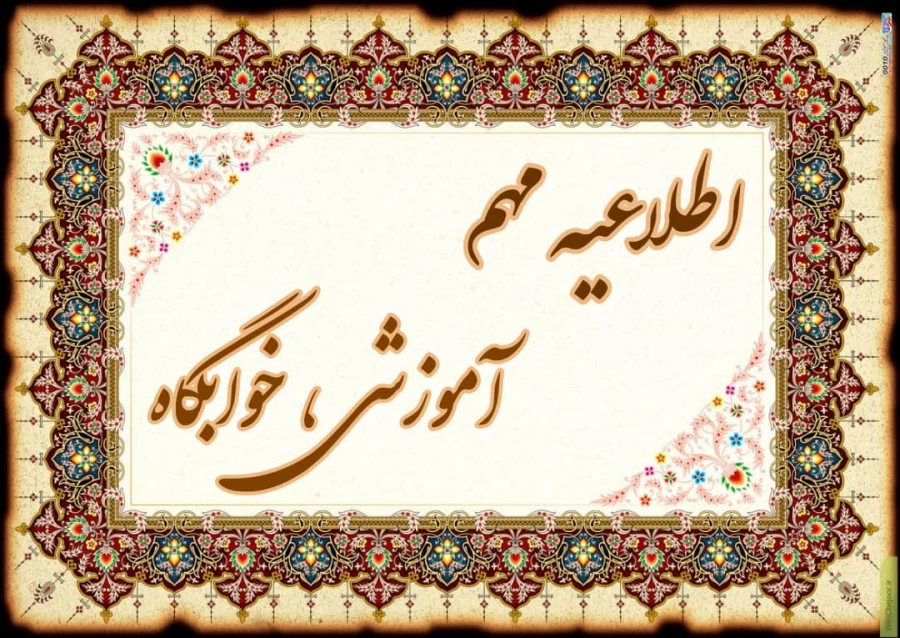 اطلاعیه مهم
آموزش ، خوابگاه